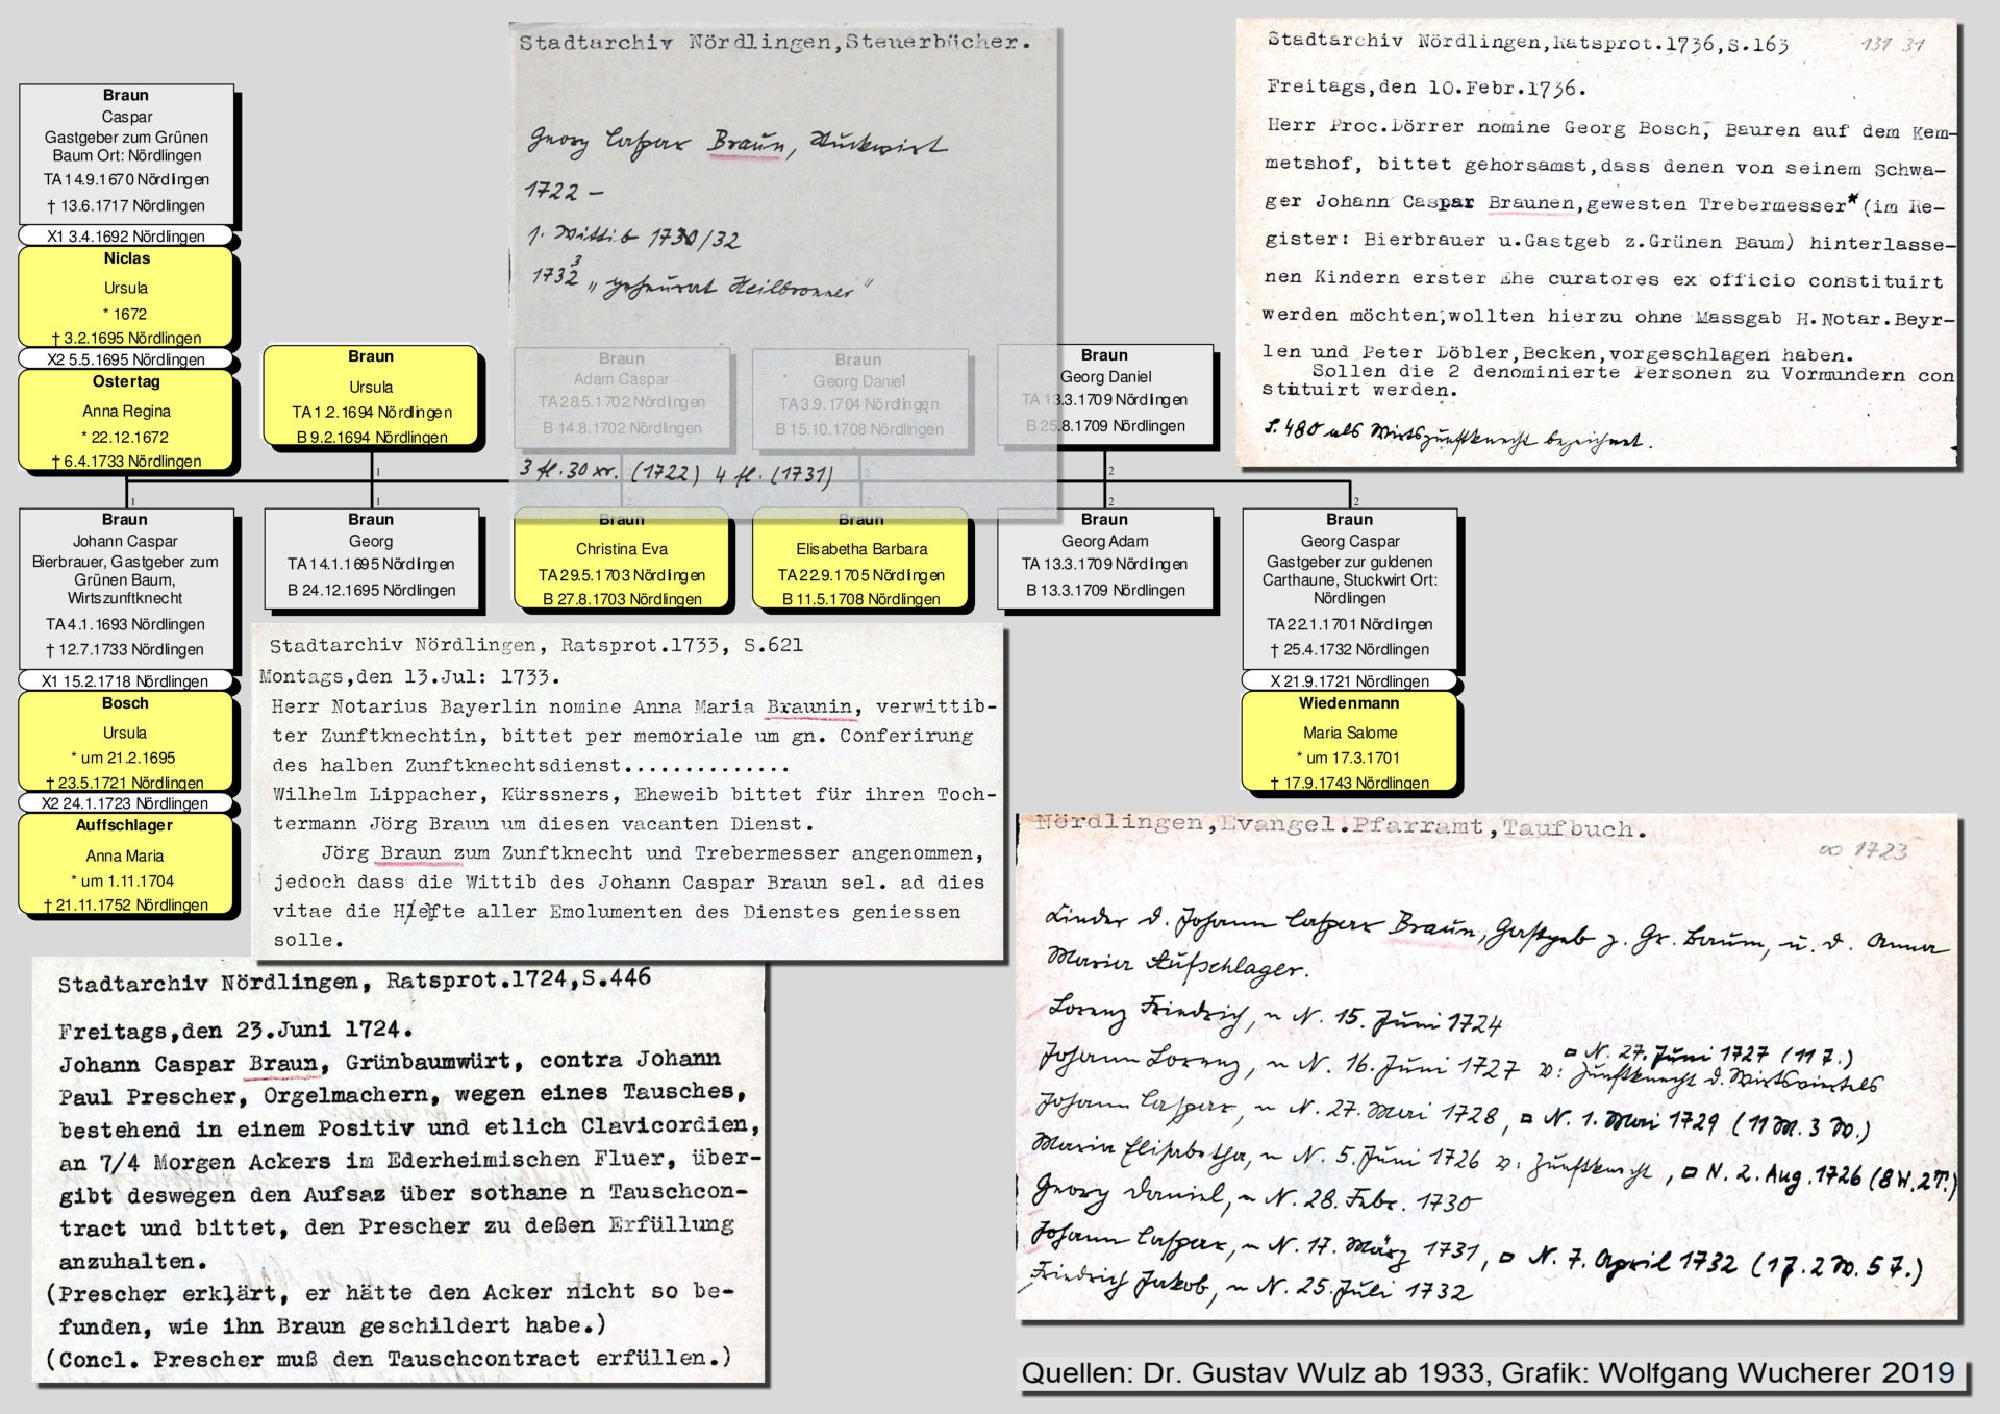 Braun
Caspar
Gastgeber zum Grünen
Baum Ort: Nördlingen
TA 14.9.1670 Nördlingen
† 13.6.1717 Nördlingen
X1 3.4.1692 Nördlingen
Niclas
Ursula
* 1672
† 3.2.1695 Nördlingen
X2 5.5.1695 Nördlingen
Ostertag
Anna Regina
* 22.12.1672
† 6.4.1733 Nördlingen
Braun
Ursula
TA 1.2.1694 Nördlingen
B 9.2.1694 Nördlingen
Stadtarchiv Nördlingen,Steuerbücher.
Georg Caspar Braun, Stuckwirt
1722 –
1. Wittib 1730/32
1732 3 „ geheurat Heilbronner “
Braun
Adam Caspar
TA 28.5.1702 Nördlingen
B 14.8.1702 Nördlingen
Braun
Georg Daniel
TA 3.9.1704 Nördlingen
B 15.10.1708 Nördlingen
Braun
Georg Daniel
TA 13.3.1709 Nördlingen
B 25.8.1709 Nördlingen
3 fl. 30 xr. (1722) 4 fl. (1731)
1
2
2
2
1
1
2
2
2
2
Braun
Johann Caspar
Bierbrauer, Gastgeber zum
Grünen Baum,
Wirtszunftknecht
TA 4.1.1693 Nördlingen
† 12.7.1733 Nördlingen
X1 15.2.1718 Nördlingen
Bosch
Ursula
* um 21.2.1695
† 23.5.1721 Nördlingen
X2 24.1.1723 Nördlingen
Auffschlager
Anna Maria
* um 1.11.1704
† 21.11.1752 Nördlingen
Braun
Georg
TA 14.1.1695 Nördlingen
B 24.12.1695 Nördlingen
Braun
Christina Eva
TA 29.5.1703 Nördlingen
B 27.8.1703 Nördlingen
Braun
Elisabetha Barbara
TA 22.9.1705 Nördlingen
B 11.5.1708 Nördlingen
Braun
Georg Adam
TA 13.3.1709 Nördlingen
B 13.3.1709 Nördlingen
Braun
Georg Caspar
Gastgeber zur guldenen
Carthaune, Stuckwirt Ort:
Nördlingen
TA 22.1.1701 Nördlingen
† 25.4.1732 Nördlingen
X 21.9.1721 Nördlingen
Wiedenmann
Maria Salome
* um 17.3.1701
† 17.9.1743 Nördlingen
Stadtarchiv Nördlingen,Ratsprot.1736,S.163
131 31
Freitags,den 10.Febr.1736.
Herr Proc.Dörrer nomine Georg Bosch, Bauren auf dem Kem-
metshof, bittet gehorsamst,dass denen von seinem Schwa-
ger Johann Caspar Braunen,gewesten Trebermesser* (im Re-
gister: Bierbrauer u.Gastgeb z.Grünen Baum) hinterlasse-
nen Kindern erster Ehe curatores ex officio constituirt
werden möchten;wollten hierzu ohne Massgab H.Notar.Beyr-
len und Peter Döbler,Becken,vorgeschlagen haben.
Sollen die 2 denominierte Personen zu Vormundern con
stituirt werden.
S. 480 als Wirtszunftknecht bezeichnet.
Stadtarchiv Nördlingen, Ratsprot.1733, S.621
Montags,den 13.Jul: 1733.
Herr Notarius Bayerlin nomine Anna Maria Braunin, verwittib-
ter Zunftknechtin, bittet per memoriale um gn. Conferirung
des halben Zunftknechtsdienst..............
Wilhelm Lippacher, Kürssners, Eheweib bittet für ihren Toch-
termann Jörg Braun um diesen vacanten Dienst.
Jörg Braun zum Zunftknecht und Trebermesser angenommen,
jedoch dass die Wittib des Johann Caspar Braun sel. ad dies
vitae die Helfte aller Emolumenten des Dienstes geniessen
solle.
Stadtarchiv Nördlingen, Ratsprot.1724,S.446
Freitags,den 23.Juni 1724.
Johann Caspar Braun, Grünbaumwürt, contra Johann
Paul Prescher, Orgelmachern, wegen eines Tausches,
bestehend in einem Positiv und etlich Clavicordien,
an 7/4 Morgen Ackers im Ederheimischen Fluer, über-
gibt deswegen den Aufsaz über sothane n Tauschcon-
tract und bittet, den Prescher zu deßen Erfüllung
anzuhalten.
(Prescher erklärt, er hätte den Acker nicht so be-
funden, wie ihn Braun geschildert habe.)
(Concl. Prescher muß den Tauschcontract erfüllen.)
Nördlingen,Evangel.Pfarramt,Taufbuch.
∞ 1723
Kinder d. Johann Caspar Braun, Gastgeb z. Gr. Baum, u. d. Anna
Maria Aufschlager.
Lorenz Friedrich, ~ N. 15. Juni 1724
Johann Lorenz, ~ N. 16. Juni 1727 v: Zunftknecht d. Wirtsviertels
□ N. 27. Juni 1727 (11 T.)
Johann Caspar, ~ N. 27. Mai 1728, □ N. 1. Mai 1729 (11 M. 3 W.)
Maria Elisabetha, ~ N. 5. Juni 1726 v: Zunftknecht, □ N. 2. Aug. 1726 (8 W. 2 T.)
Georg Daniel, ~ N. 28. Febr. 1730
Johann Caspar, ~ N. 17. März 1731, □ N. 7. April 1732 (1 J. 2 W. 5 T.)
Friedrich Jakob, ~ N. 25. Juli 1732
Quellen: Dr. Gustav Wulz ab 1933, Grafik: Wolfgang Wucherer 2019